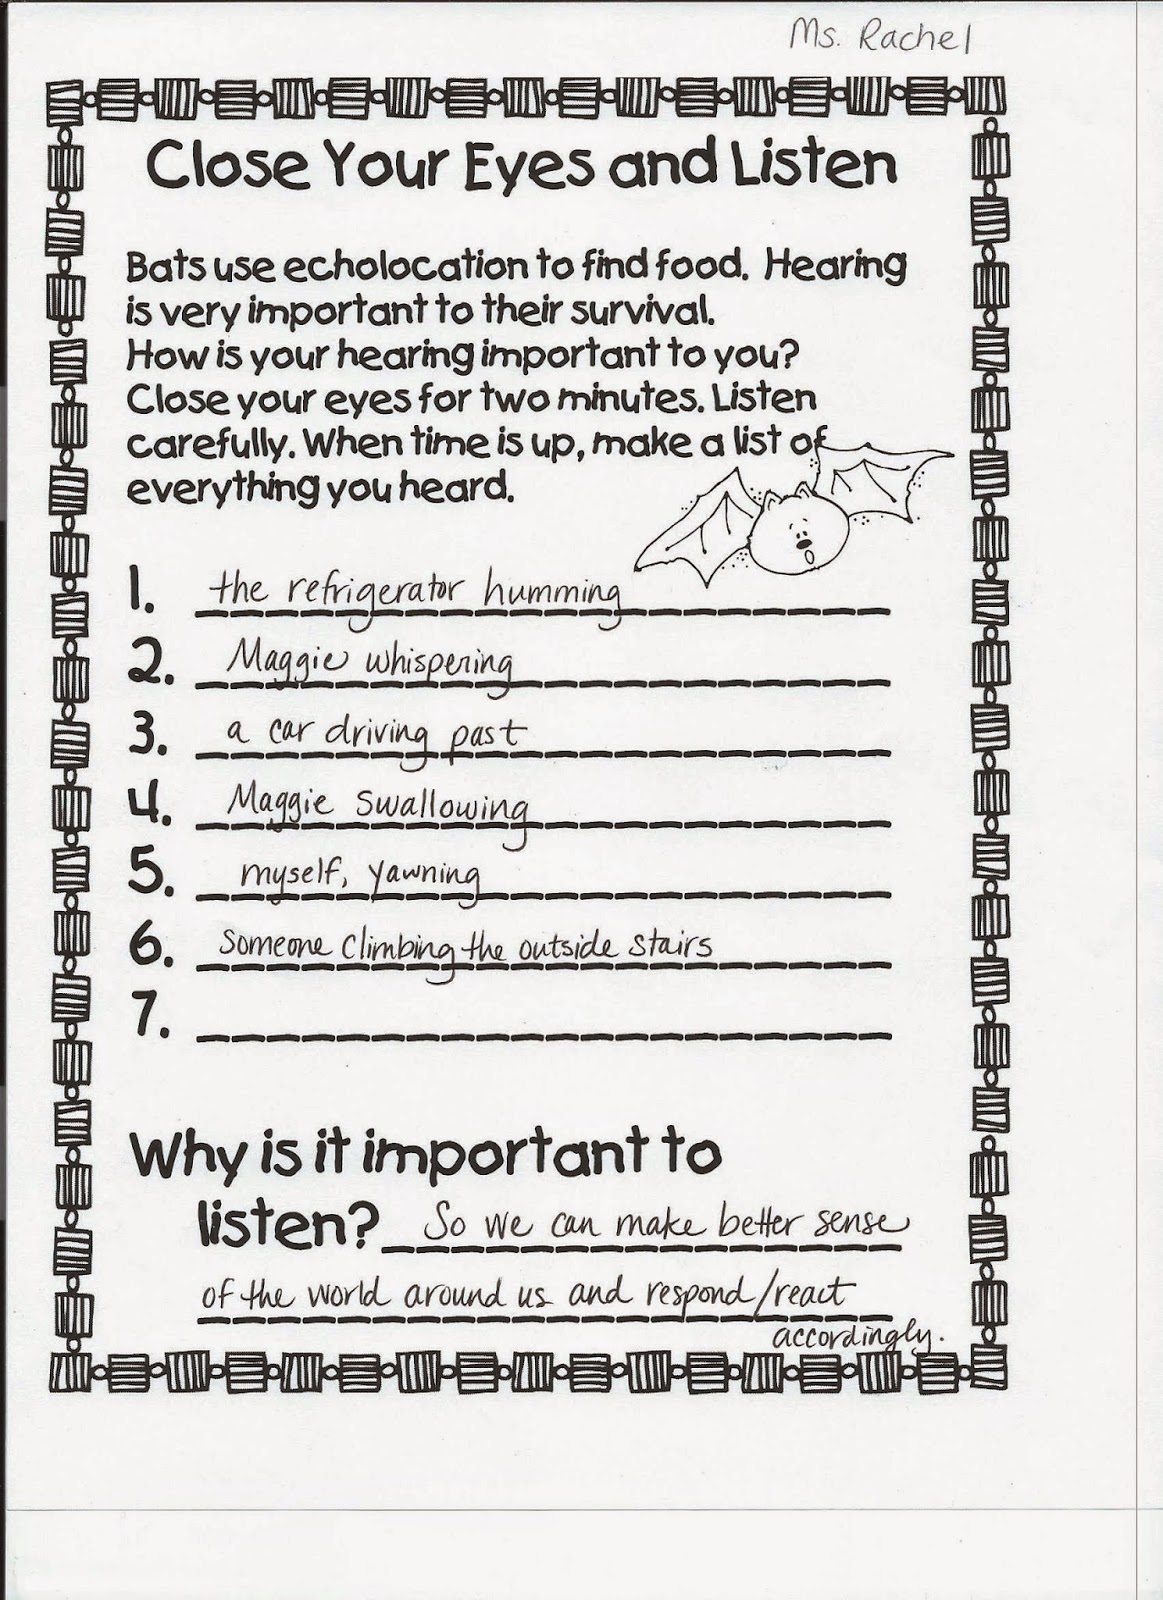 Ms. Rachel
Close Your Eyes and Listen
Bats use echolocation to find food. Hearing
is very important to their survival.
How is your hearing important to you?
Close your eyes for two minutes. Listen
carefully. When time is up, make a list of
everything you heard.
1. the refrigerator humming
2. Maggie whispering
3. a car driving past
4. Maggie swallowing
5. myself, yawning
6. someone climbing the outside stairs
7.
Why is it important to
listen? So we can make better sense
of the world around us and respond/react
accordingly.